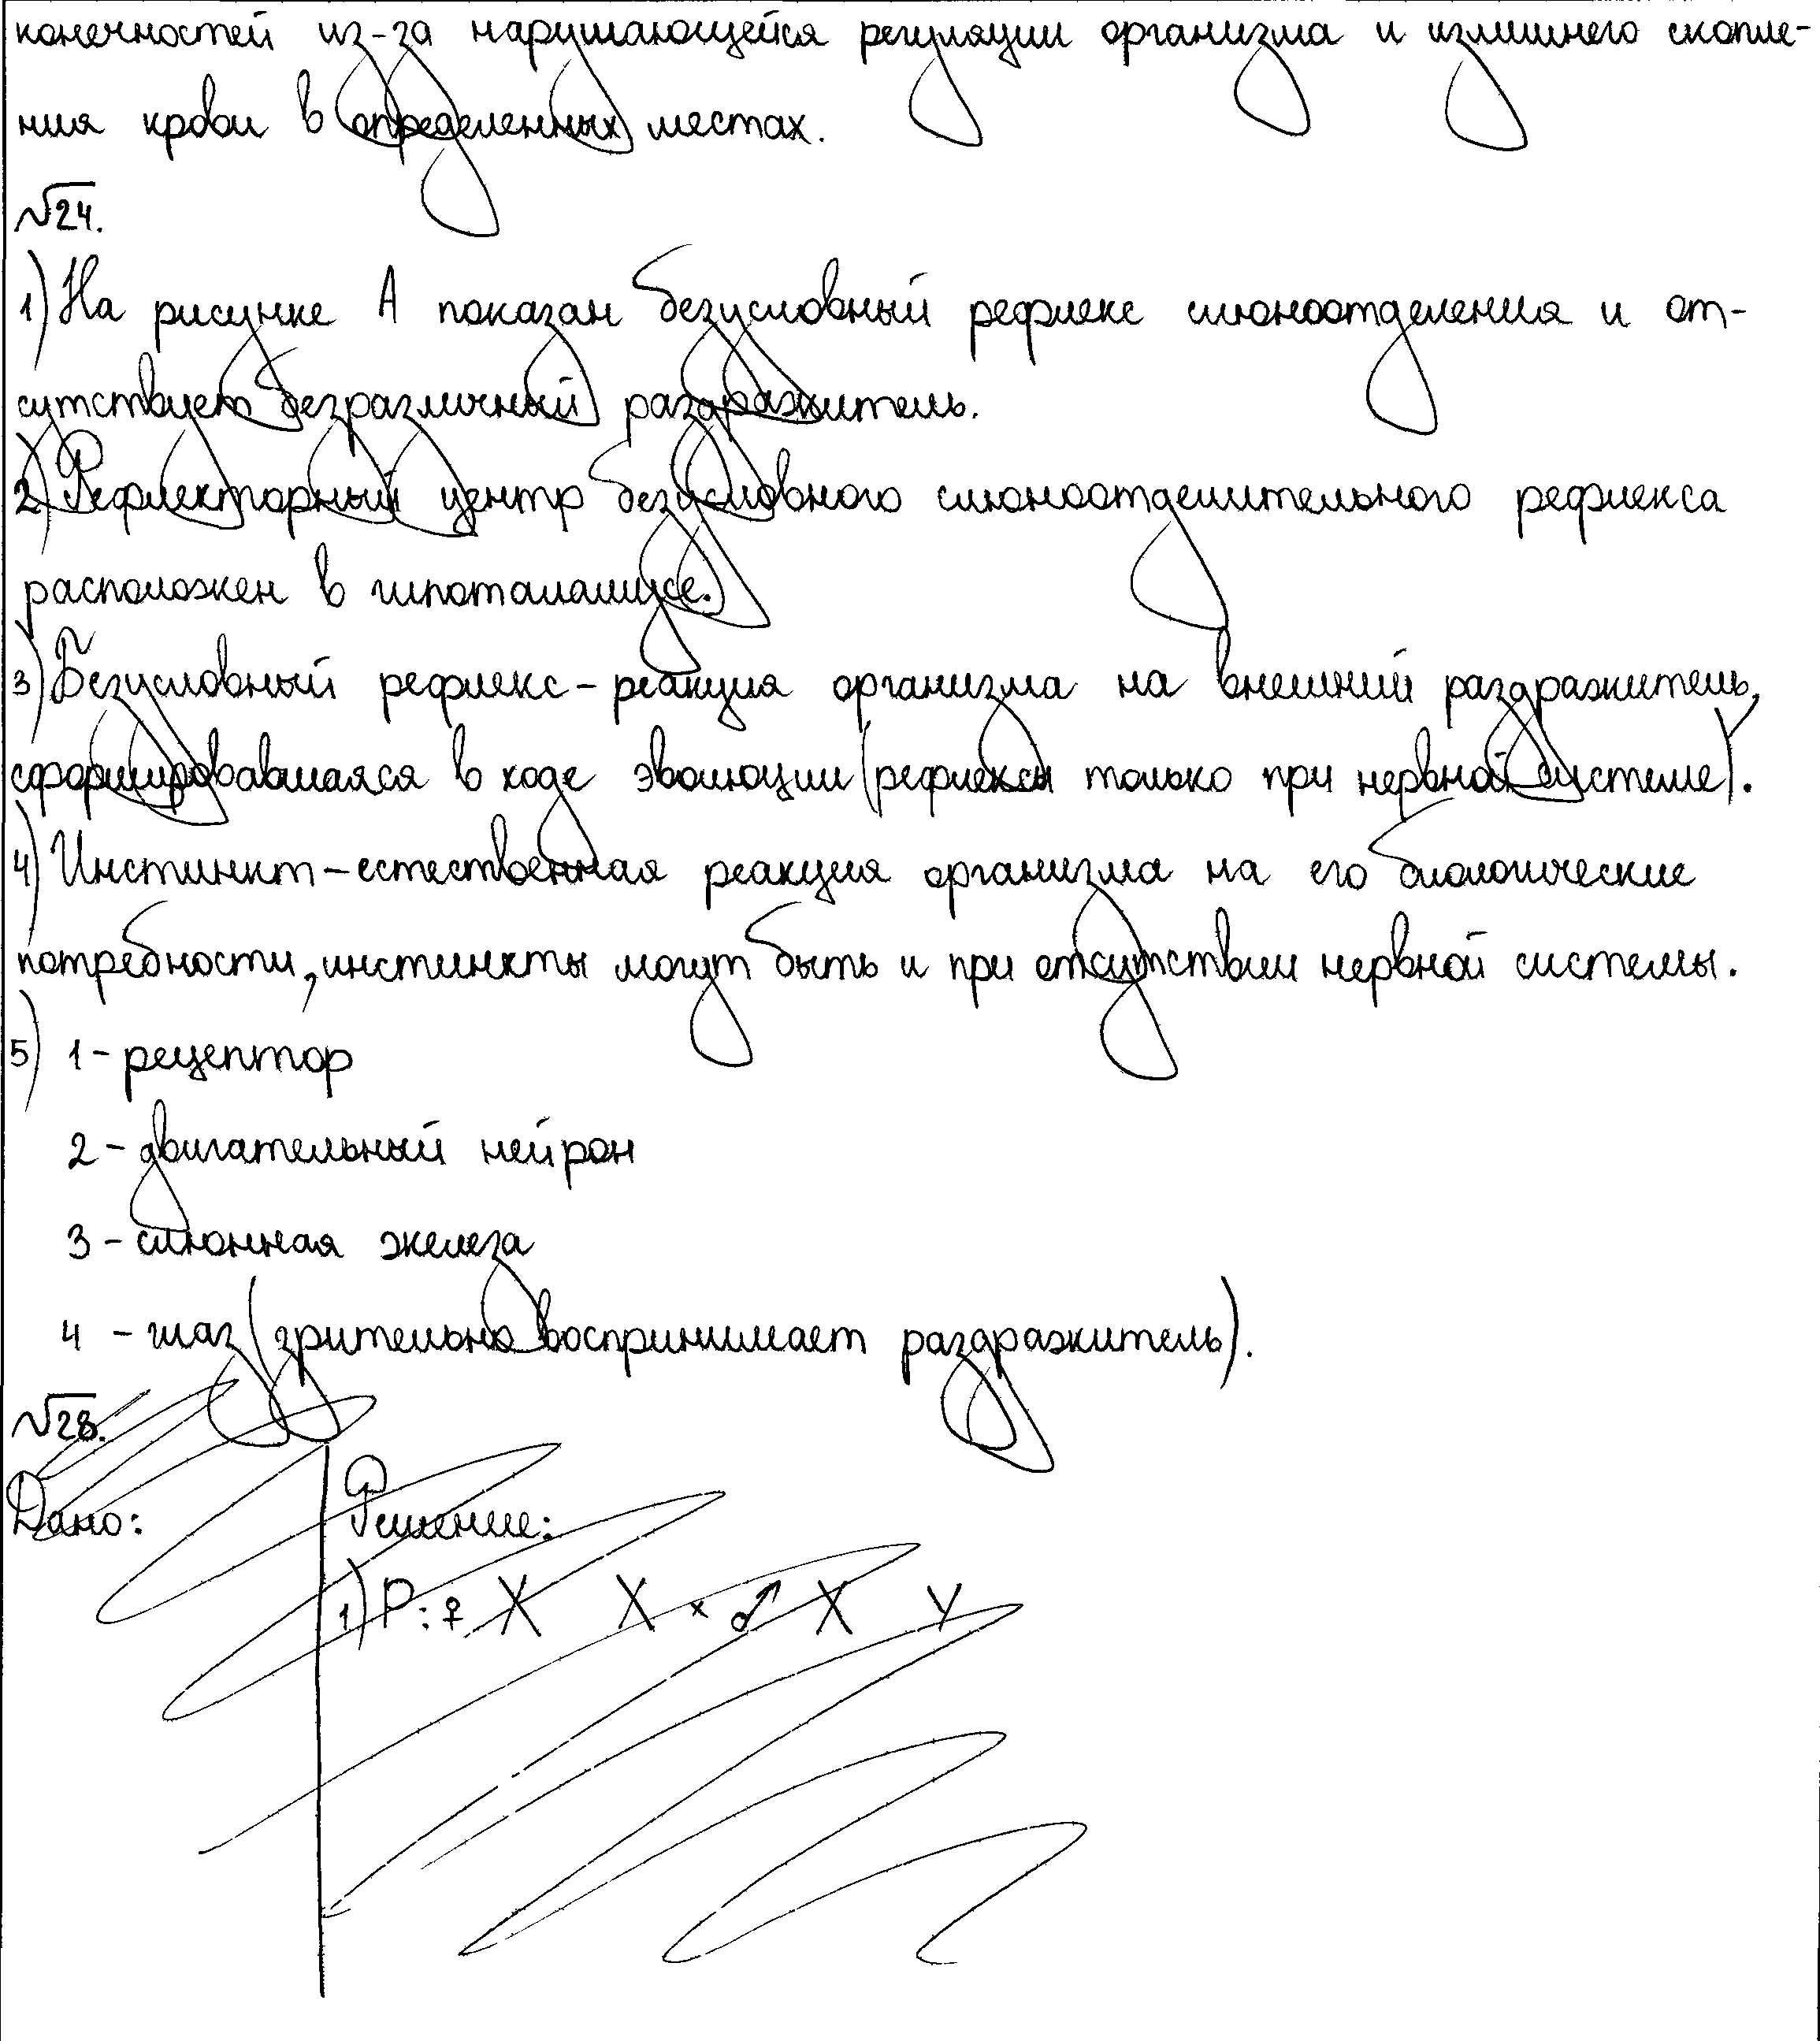 конечностей из-за нарушающейся регуляции организма и излишнего скопле-
ния крови в определенных местах.
№24.
1) На рисунке А показан безусловный рефлекс слюноотделения и от-
сутствует безразличный раздражитель.
2) Рефлекторный центр безусловного слюноотделительного рефлекса
расположен в гипоталамусе.
3) Безусловный рефлекс - реакция организма на внешний раздражитель,
сформировавшаяся в ходе эволюции (рефлексы только при нервной системе).
4) Инстинкт - естественная реакция организма на его биологические
потребности, инстинкты могут быть и при отсутствии нервной системы.
5) 1 - рецептор
2 - двигательный нейрон
3 - слюнная железа
4 - глаз (зрительно воспринимает раздражитель).
№28.
Дано:
Решение:
1) P: ♀ X X × ♂ X Y